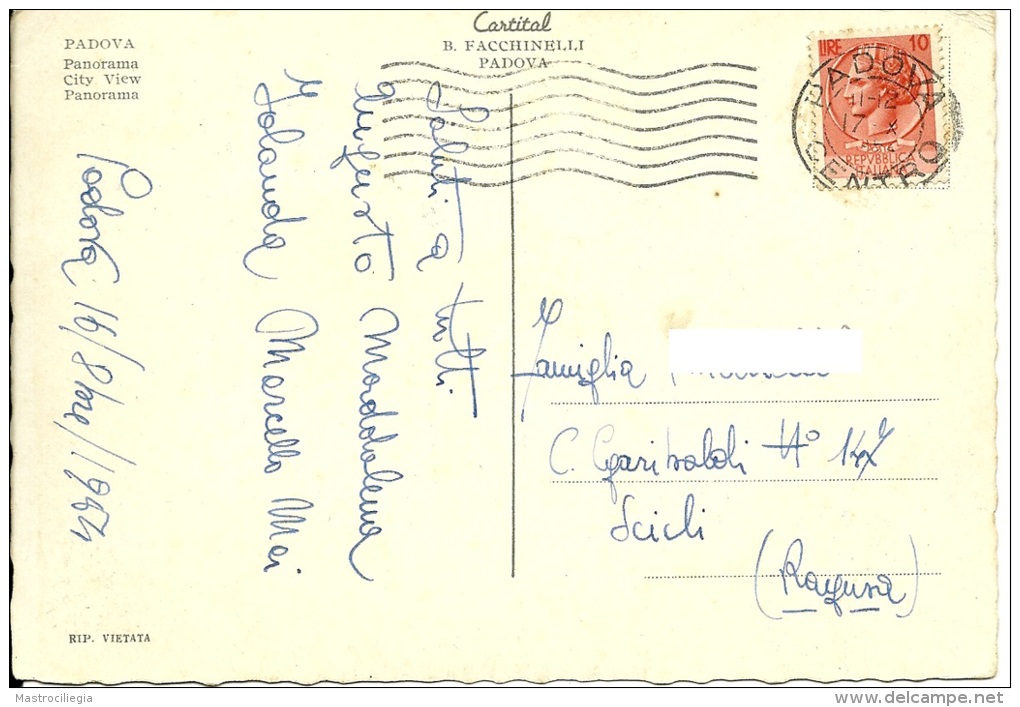 PADOVA
Panorama
City View
Panorama
Cartital
B. FACCHINELLI
PADOVA
LIRE 10
REPVBBLICA
ITALIANA
PADOVA
11-12
17 X
CENTRO
Padova 16/8bre/1954
Saluti a tutti
Maddalena
Jolanda Marcello Mai
Famiglia
C. Garibaldi N° 147
Scicli
(Ragusa)
RIP. VIETATA
Mastrociliegia
www.delcampe.net